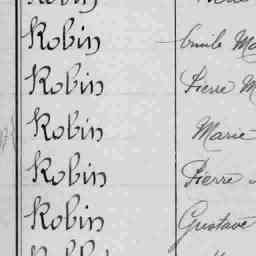 Robin Emile Ma
Robin Pierre M
Robin Marie
Robin Pierre
Robin Gustave